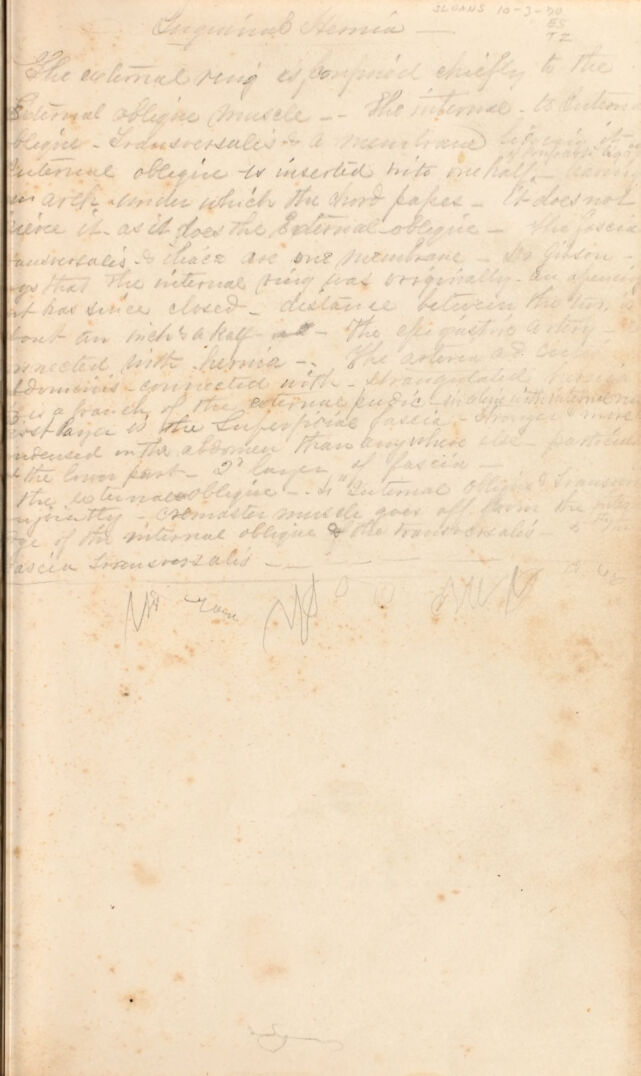 SLOANS 10-3-70
ES
TZ
Inguinal Hernia —
The external ring is confined chiefly to the
External oblique muscle -- The internal - to Internal
oblique - Transversalis & a membrane
Internal oblique is inserted into one half -
an arch under which the chord passes - It does not
pierce it as it does the External oblique - The fascia
transversalis & iliaca are one membrane - Dr Gibson -
says that the internal ring was originally an opening
but has since closed - distance between the two is
about an inch & a half - The epigastric artery -
connected with hernia - The arteria ad cutem
abdominis - connected with - strangulated hernia
is a branch of the external pudic -
first layer is the Superficial fascia - stronger more
condensed in the abdomen than anywhere else -
the lower part - 2d layer of fascia -
the external oblique - Internal oblique & transver
- cremaster muscle goes off from the
edge of the internal oblique & the transversalis -
fascia transversalis -